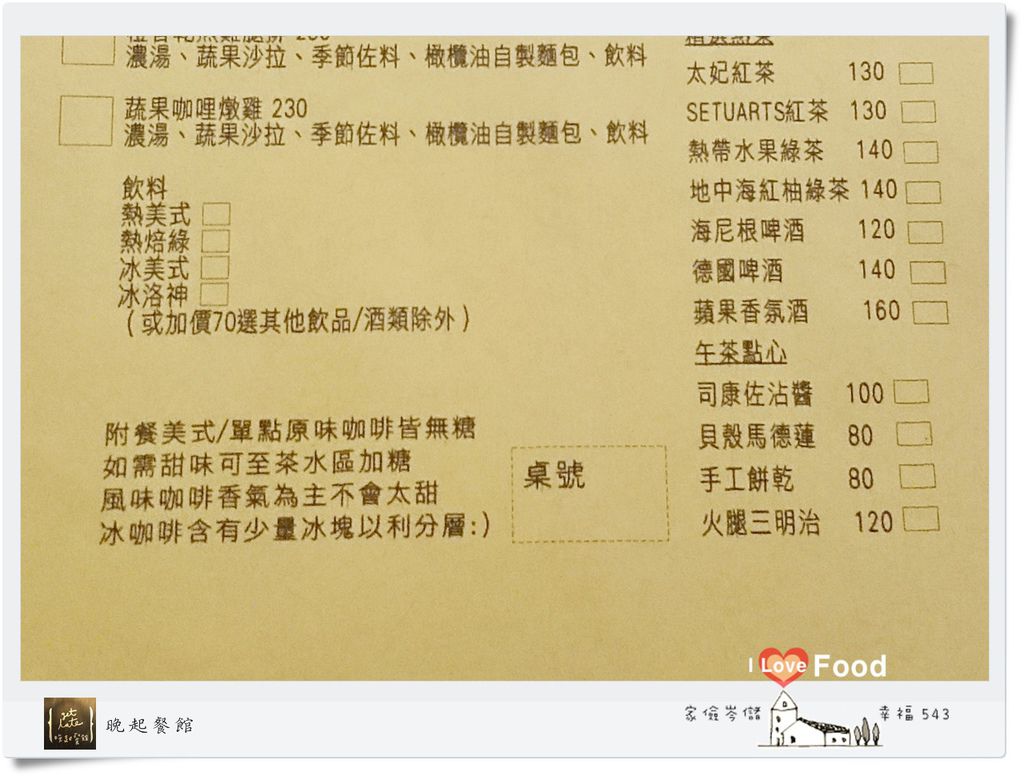 濃湯、蔬果沙拉、季節佐料、橄欖油自製麵包、飲料
蔬果咖哩燉雞 230
濃湯、蔬果沙拉、季節佐料、橄欖油自製麵包、飲料
飲料
熱美式
熱焙綠
冰美式
冰洛神
(或加價70選其他飲品/酒類除外)
附餐美式/單點原味咖啡皆無糖
如需甜味可至茶水區加糖
風味咖啡香氣為主不會太甜
冰咖啡含有少量冰塊以利分層:)
桌號
太妃紅茶 130
SETUARTS紅茶 130
熱帶水果綠茶 140
地中海紅柚綠茶 140
海尼根啤酒 120
德國啤酒 140
蘋果香氛酒 160
午茶點心
司康佐沾醬 100
貝殼馬德蓮 80
手工餅乾 80
火腿三明治 120
I Love Food
晚起餐館
家儉岑儲 幸福543